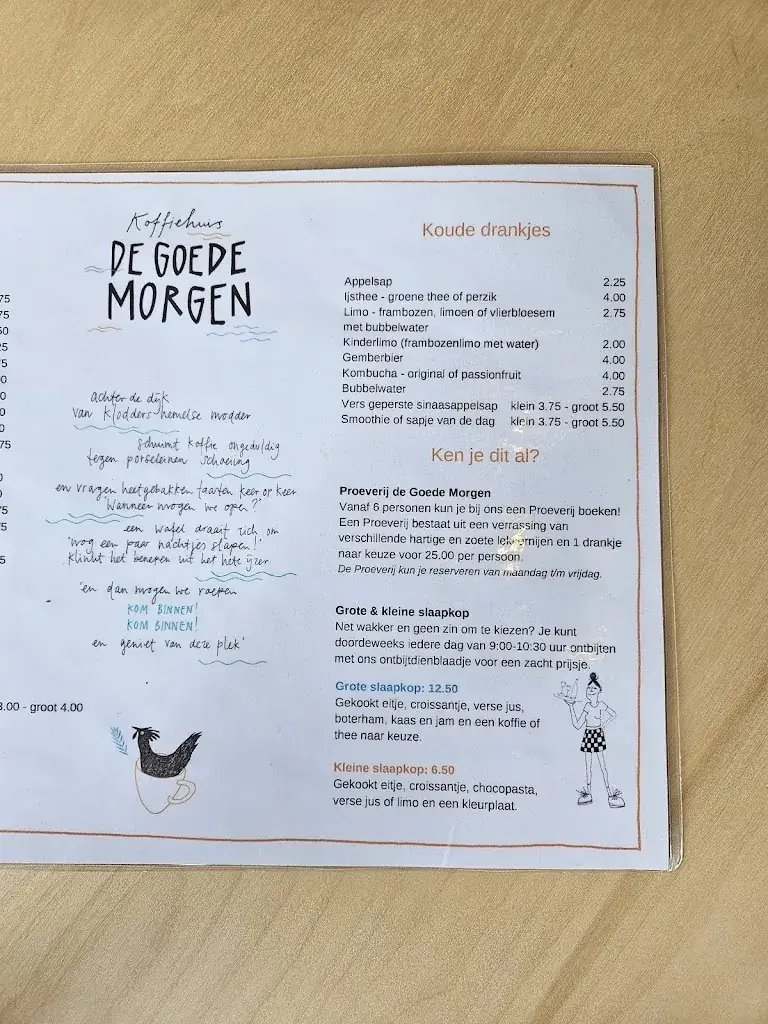 75
75
50
25
75
0
0
0
0
75
0
0
75
75
3.00 - groot 4.00
Koffiehuis
DE GOEDE
MORGEN
achter de dijk
van Klodders hemelse modder
schuimt koffie ongeduldig
tegen porseleinen schoeiing
en vragen heetgebakken taarten keer op keer
'Wanneer mogen we open?'
een wafel draait zich om
'nog een paar nachtjes slapen!'
Klinkt het beneden uit het hete ijzer
'en dan mogen we roepen
KOM BINNEN!
KOM BINNEN!
en geniet van deze plek'
Koude drankjes
Appelsap 2.25
Ijsthee - groene thee of perzik 4.00
Limo - frambozen, limoen of vlierbloesem 2.75
met bubbelwater
Kinderlimo (frambozenlimo met water) 2.00
Gemberbier 4.00
Kombucha - original of passionfruit 4.00
Bubbelwater 2.75
Vers geperste sinaasappelsap klein 3.75 - groot 5.50
Smoothie of sapje van de dag klein 3.75 - groot 5.50
Ken je dit al?
Proeverij de Goede Morgen
Vanaf 6 personen kun je bij ons een Proeverij boeken!
Een Proeverij bestaat uit een verrassing van
verschillende hartige en zoete lekkernijen en 1 drankje
naar keuze voor 25.00 per persoon.
De Proeverij kun je reserveren van maandag t/m vrijdag.
Grote & kleine slaapkop
Net wakker en geen zin om te kiezen? Je kunt
doordeweeks iedere dag van 9:00-10:30 uur ontbijten
met ons ontbijtdienblaadje voor een zacht prijsje.
Grote slaapkop: 12.50
Gekookt eitje, croissantje, verse jus,
boterham, kaas en jam en een koffie of
thee naar keuze.
Kleine slaapkop: 6.50
Gekookt eitje, croissantje, chocopasta,
verse jus of limo en een kleurplaat.